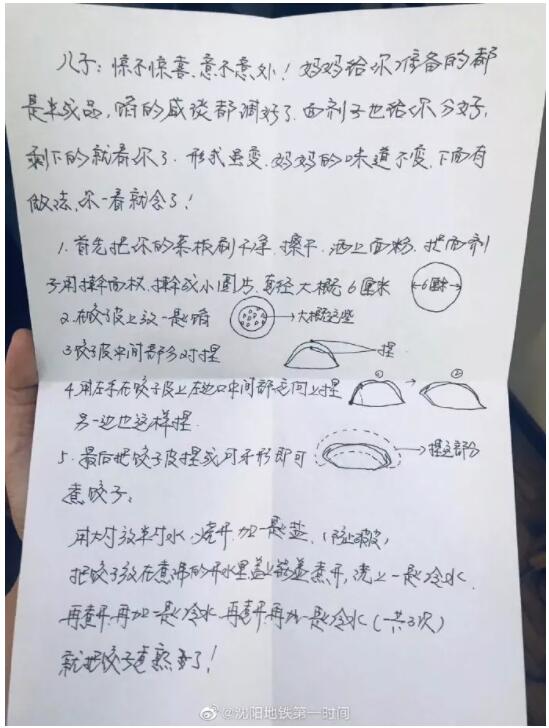 儿子：惊不惊喜、意不意外！妈妈给你准备的都
是半成品，馅的咸淡都调好了，面剂子也给你分好，
剩下的就看你了．形式虽变．妈妈的味道不变．下面有
做法，你一看就会了！
1．首先把你的菜板刷干净．擦干．洒上面粉．把面剂
子用擀面杖．擀成小圆片．直径大概6厘米
6厘米
2．在饺子皮上放一些馅
大概这些
3 饺子皮中间部分对捏
捏
4．用左手在饺子皮上左边口中间部 向上捏
① ②
另一边也这样捏．
5．最后把饺子皮捏成月牙形即可
捏这部分
煮饺子：
用大勺放半勺水．烧开．加一些盐．（防止破皮）
把饺子放在煮沸的开水里盖上锅盖煮开，浇上一些冷水．
再煮开，再加一些冷水 再煮开 再加一些冷水（一共3次）
就把饺子煮熟了！
@沈阳地铁第一时间